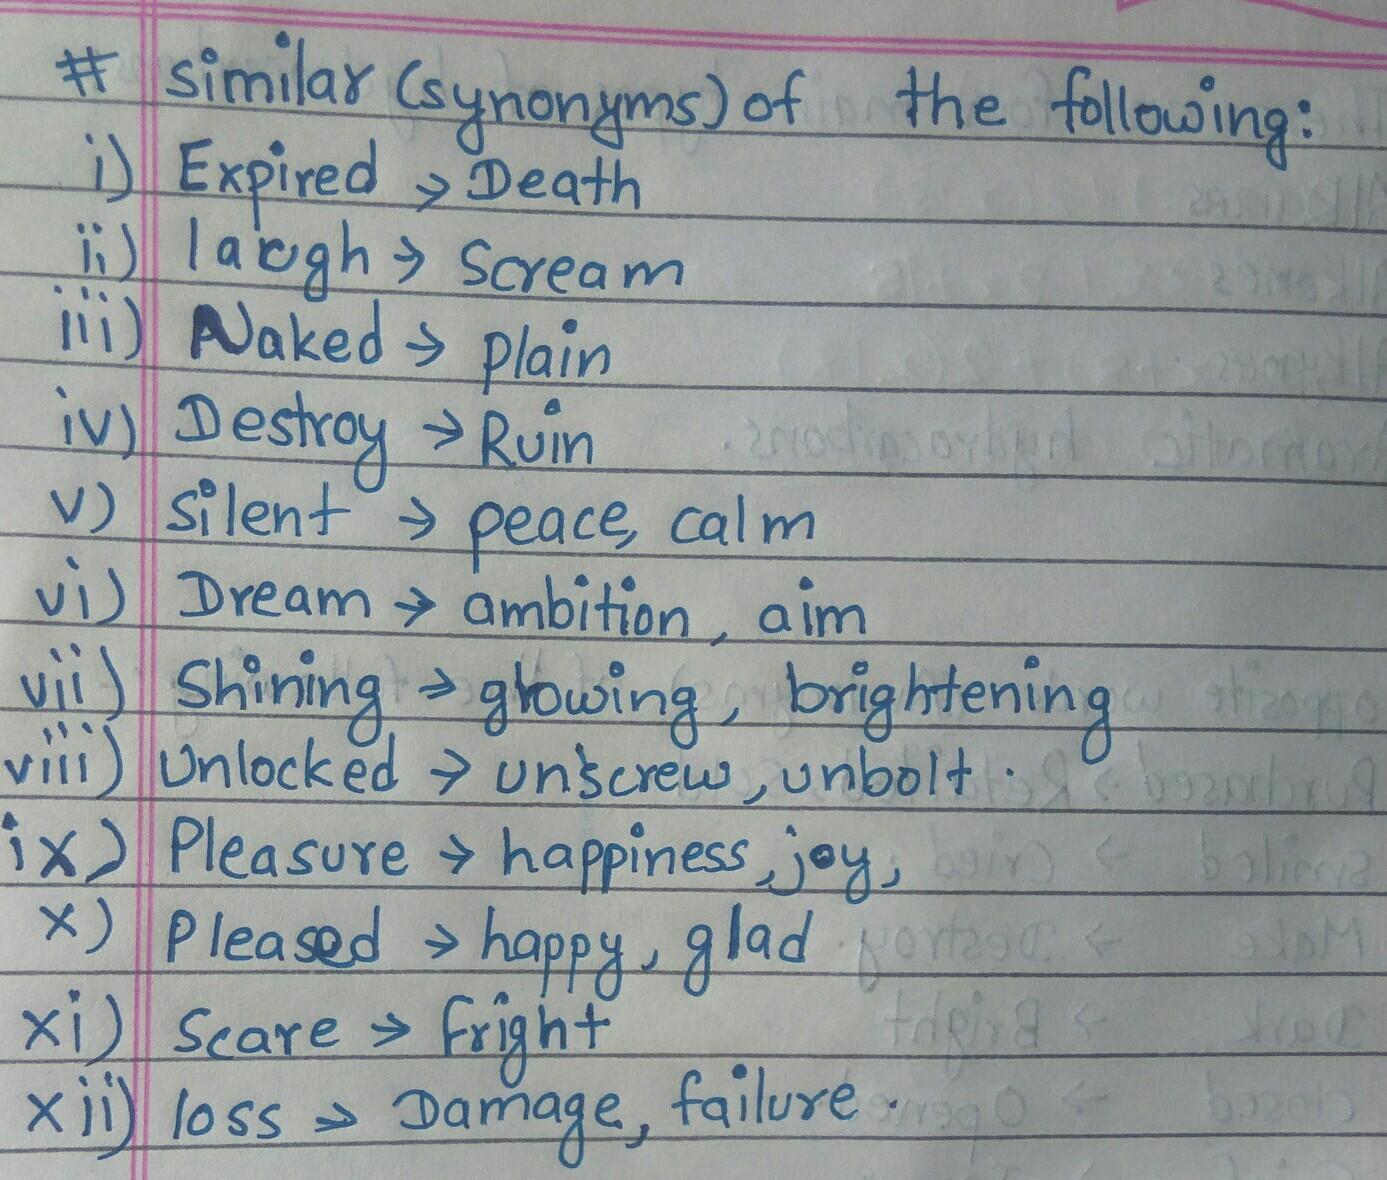 # similar (synonyms) of the following:
i) Expired → Death
ii) laugh → Scream
iii) Naked → plain
iv) Destroy → Ruin
v) silent → peace, calm
vi) Dream → ambition, aim
vii) Shining → glowing, brightening
viii) Unlocked → unscrew, unbolt.
ix) Pleasure → happiness, joy,
x) Pleased → happy, glad
xi) Scare → fright
xii) loss → Damage, failure.